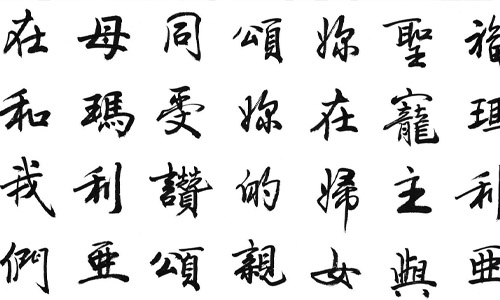 福利亞
聖寵主與
妳在婦女
頌妳的親
同受讚頌
母瑪利亞
在和我們